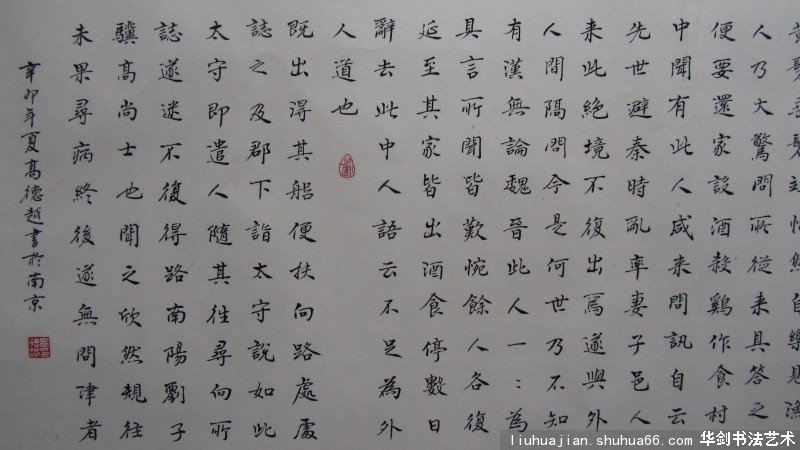 黃髮垂髫並怡然自樂見漁
人乃大驚問所從来具答之
便要還家設酒殺鷄作食村
中聞有此人咸来問訊自云
先世避秦時亂率妻子邑人
来此絕境不復出焉遂與外
人間隔問今是何世乃不知
有漢無論魏晉此人一:為
具言所聞皆歎惋餘人各復
延至其家皆出酒食停數日
辭去此中人語云不足為外
人道也
既出得其船便扶向路處處
誌之及郡下詣太守說如此
太守即遣人隨其往尋向所
誌遂迷不復得路南陽劉子
驥高尚士也聞之欣然規往
未果尋病終後遂無問津者
辛卯年夏高德越書於南京
liuhuajian.shuhua66.com 华剑书法艺术